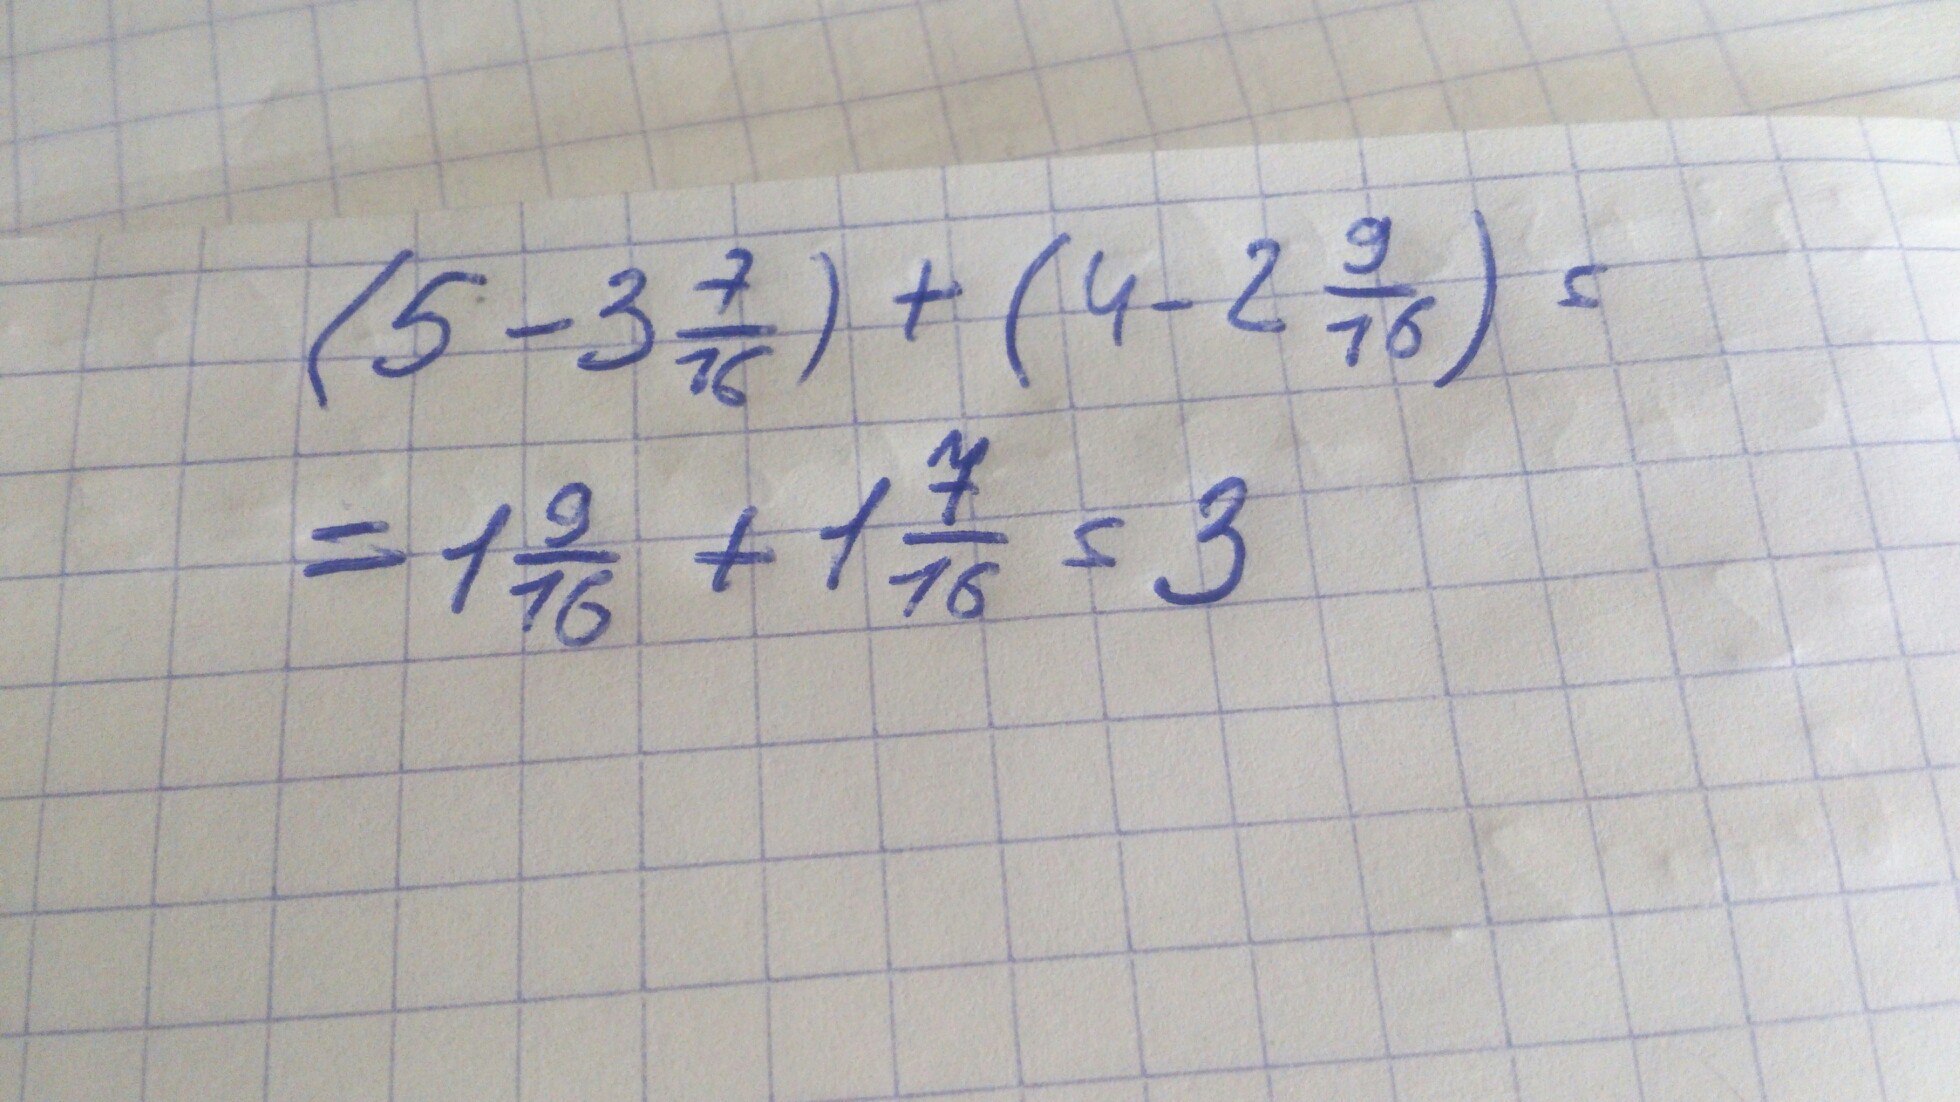 (5 - 3 7/16) + (4 - 2 9/16) =
= 1 9/16 + 1 7/16 = 3